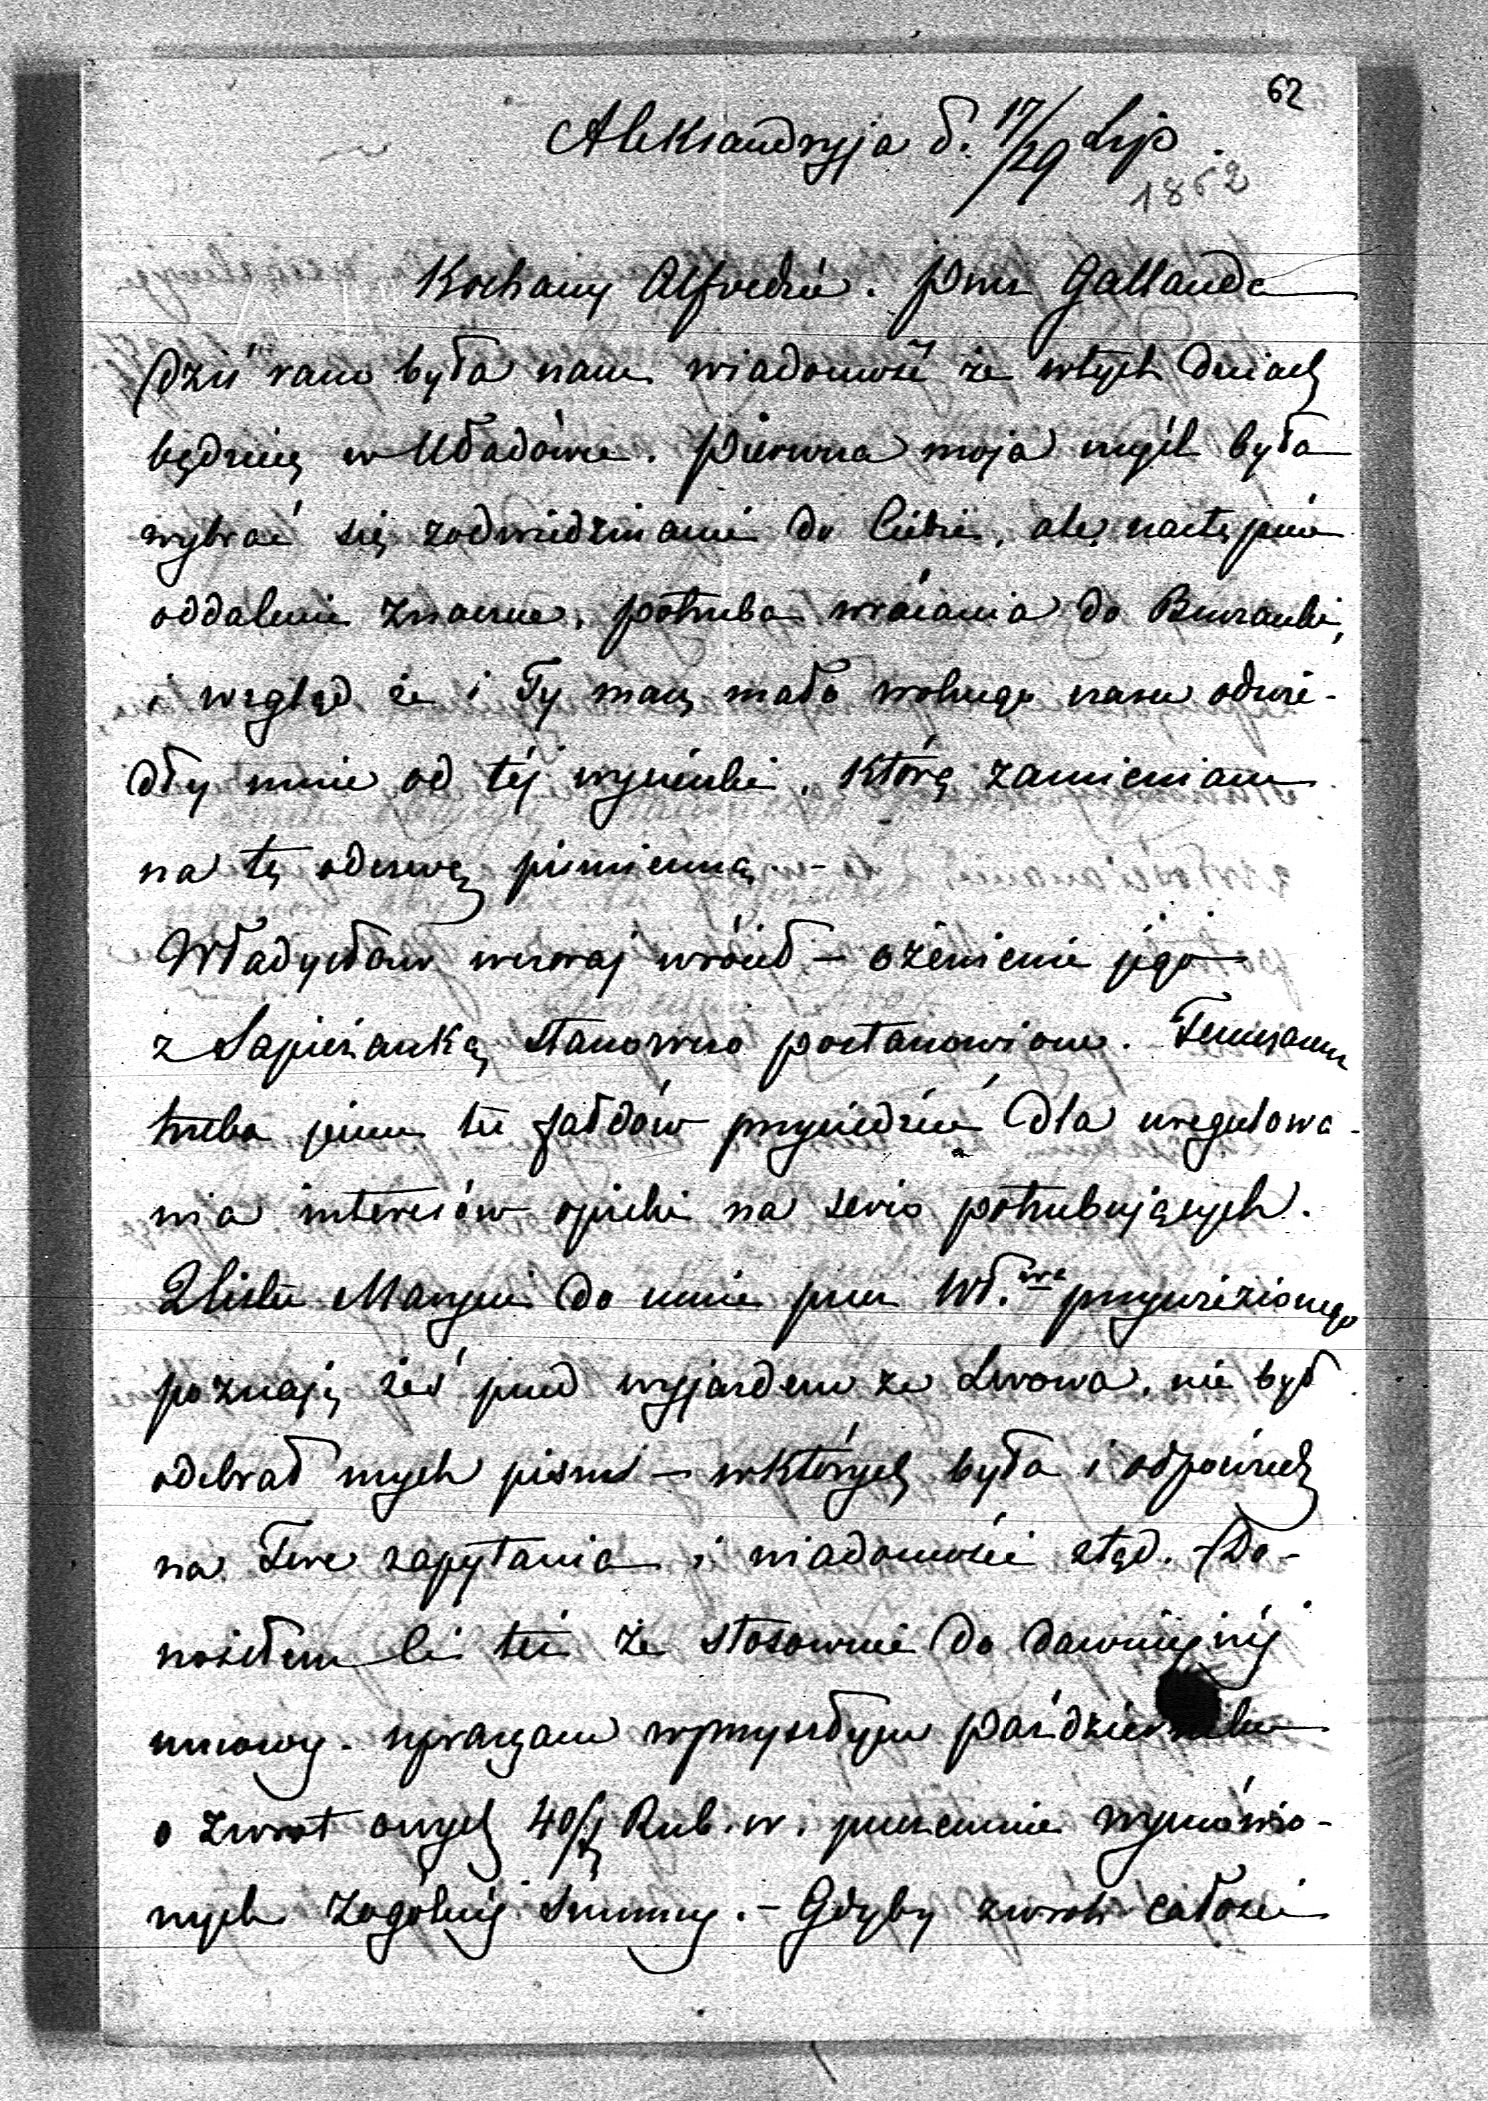 62
Aleksandryja d. 17/29 Lip.
1852
Kochany Alfredzie. Przez Gallanda
dziś rano była nam wiadomość że wtych dniach
będziesz w Uładówce. Pierwsza moja myśl była
wybrać się zodwiedzinami do Ciebie, ale następnie
oddalenie znaczne, potrzeba wracania do
i wzgląd że i Ty masz mało wolnego czasu odwie-
dły mnie od téj wycieczki, którą zamieniam
na tę odezwę piśmienną. -
Władysław wczoraj wrócił - ożenienie jego
z Sapieżanką stanowczo postanowione. Temczasem
trzeba jemu tu fałdów przysiedzieć dla uregulowa-
nia interesów opieki na serio potrzebujących.
Zlistu Maryni do mnie przez Wł.wa przywiezionego
poznaję żeś przed wyjazdem ze Lwowa, nie był
odebrał mych pism - wktórych była i odpowiedź
na Twe zapytania i wiadomości ztąd. - Do-
nosiłem Ci też że stosownie do dawniejszéj
umowy. upraszam wprzyszłym październiku
o zwrot owych 40/ Rub. w. przezemnie wymówio-
nych zogólnéj summy. - Gdyby zwrot całości